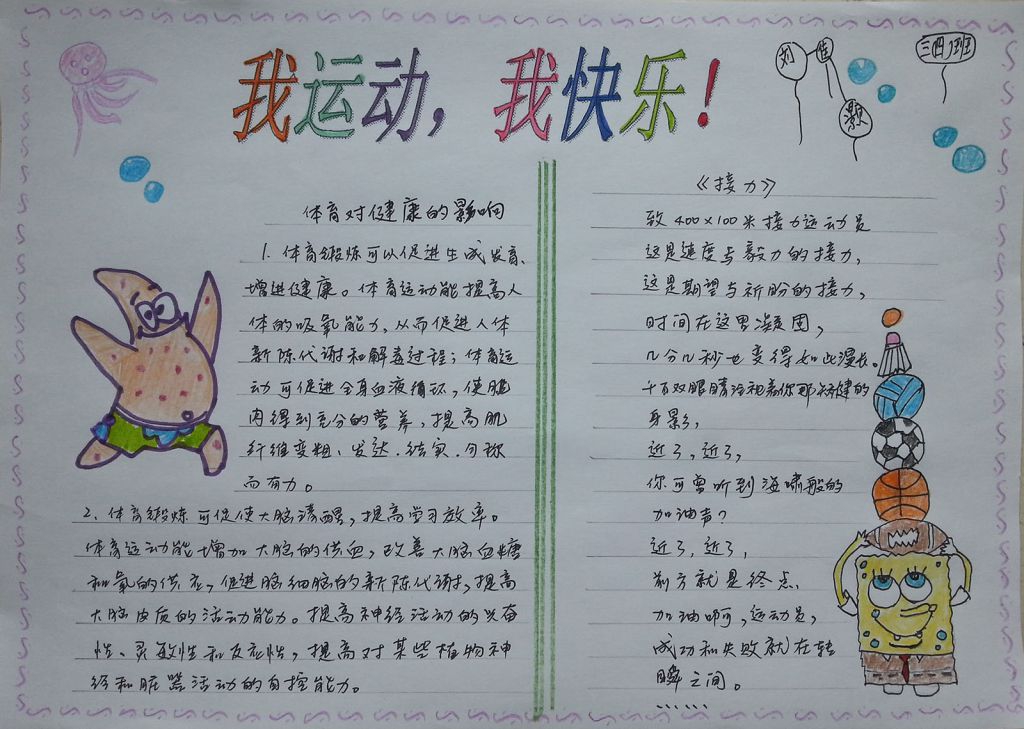 我运动，我快乐！
刘佳颢
三四班
体育对健康的影响
1. 体育锻炼可以促进生成发育、
增进健康。体育运动能提高人
体的吸氧能力，从而促进人体
新陈代谢和解毒过程；体育运
动可促进全身血液循环，使肌
肉得到充分的营养，提高肌
纤维变粗、发达、结实、匀称
而有力。
2、体育锻炼可促使大脑清醒，提高学习效率。
体育运动能增加大脑的供血，改善大脑血糖
和氧的供应，促进脑细胞的新陈代谢，提高
大脑皮质的活动能力。提高神经活动的兴奋
性、灵敏性和反应性，提高对某些植物神
经和脏器活动的自控能力。
《接力》
致400×100米接力运动员
这是速度与毅力的接力，
这是期望与祈盼的接力，
时间在这里凝固，
几分几秒也变得如此漫长。
千百双眼睛注视着你那矫健的
身影，
近了，近了，
你可曾听到海啸般的
加油声？
近了，近了，
前方就是终点，
加油啊，运动员，
成功和失败就在转
瞬之间。
……